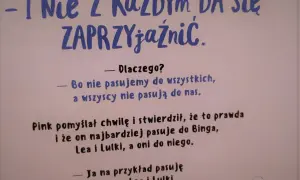 – I NIE Z KAŻDYM DA SIĘ
ZAPRZYJAŹNIĆ.
— Dlaczego?
— Bo nie pasujemy do wszystkich,
a wszyscy nie pasują do nas.
Pink pomyślał chwilę i stwierdził, że to prawda
i że on najbardziej pasuje do Binga,
Lea i Lulki, a oni do niego.
— Ja na przykład pasuję
Lea i Lulki